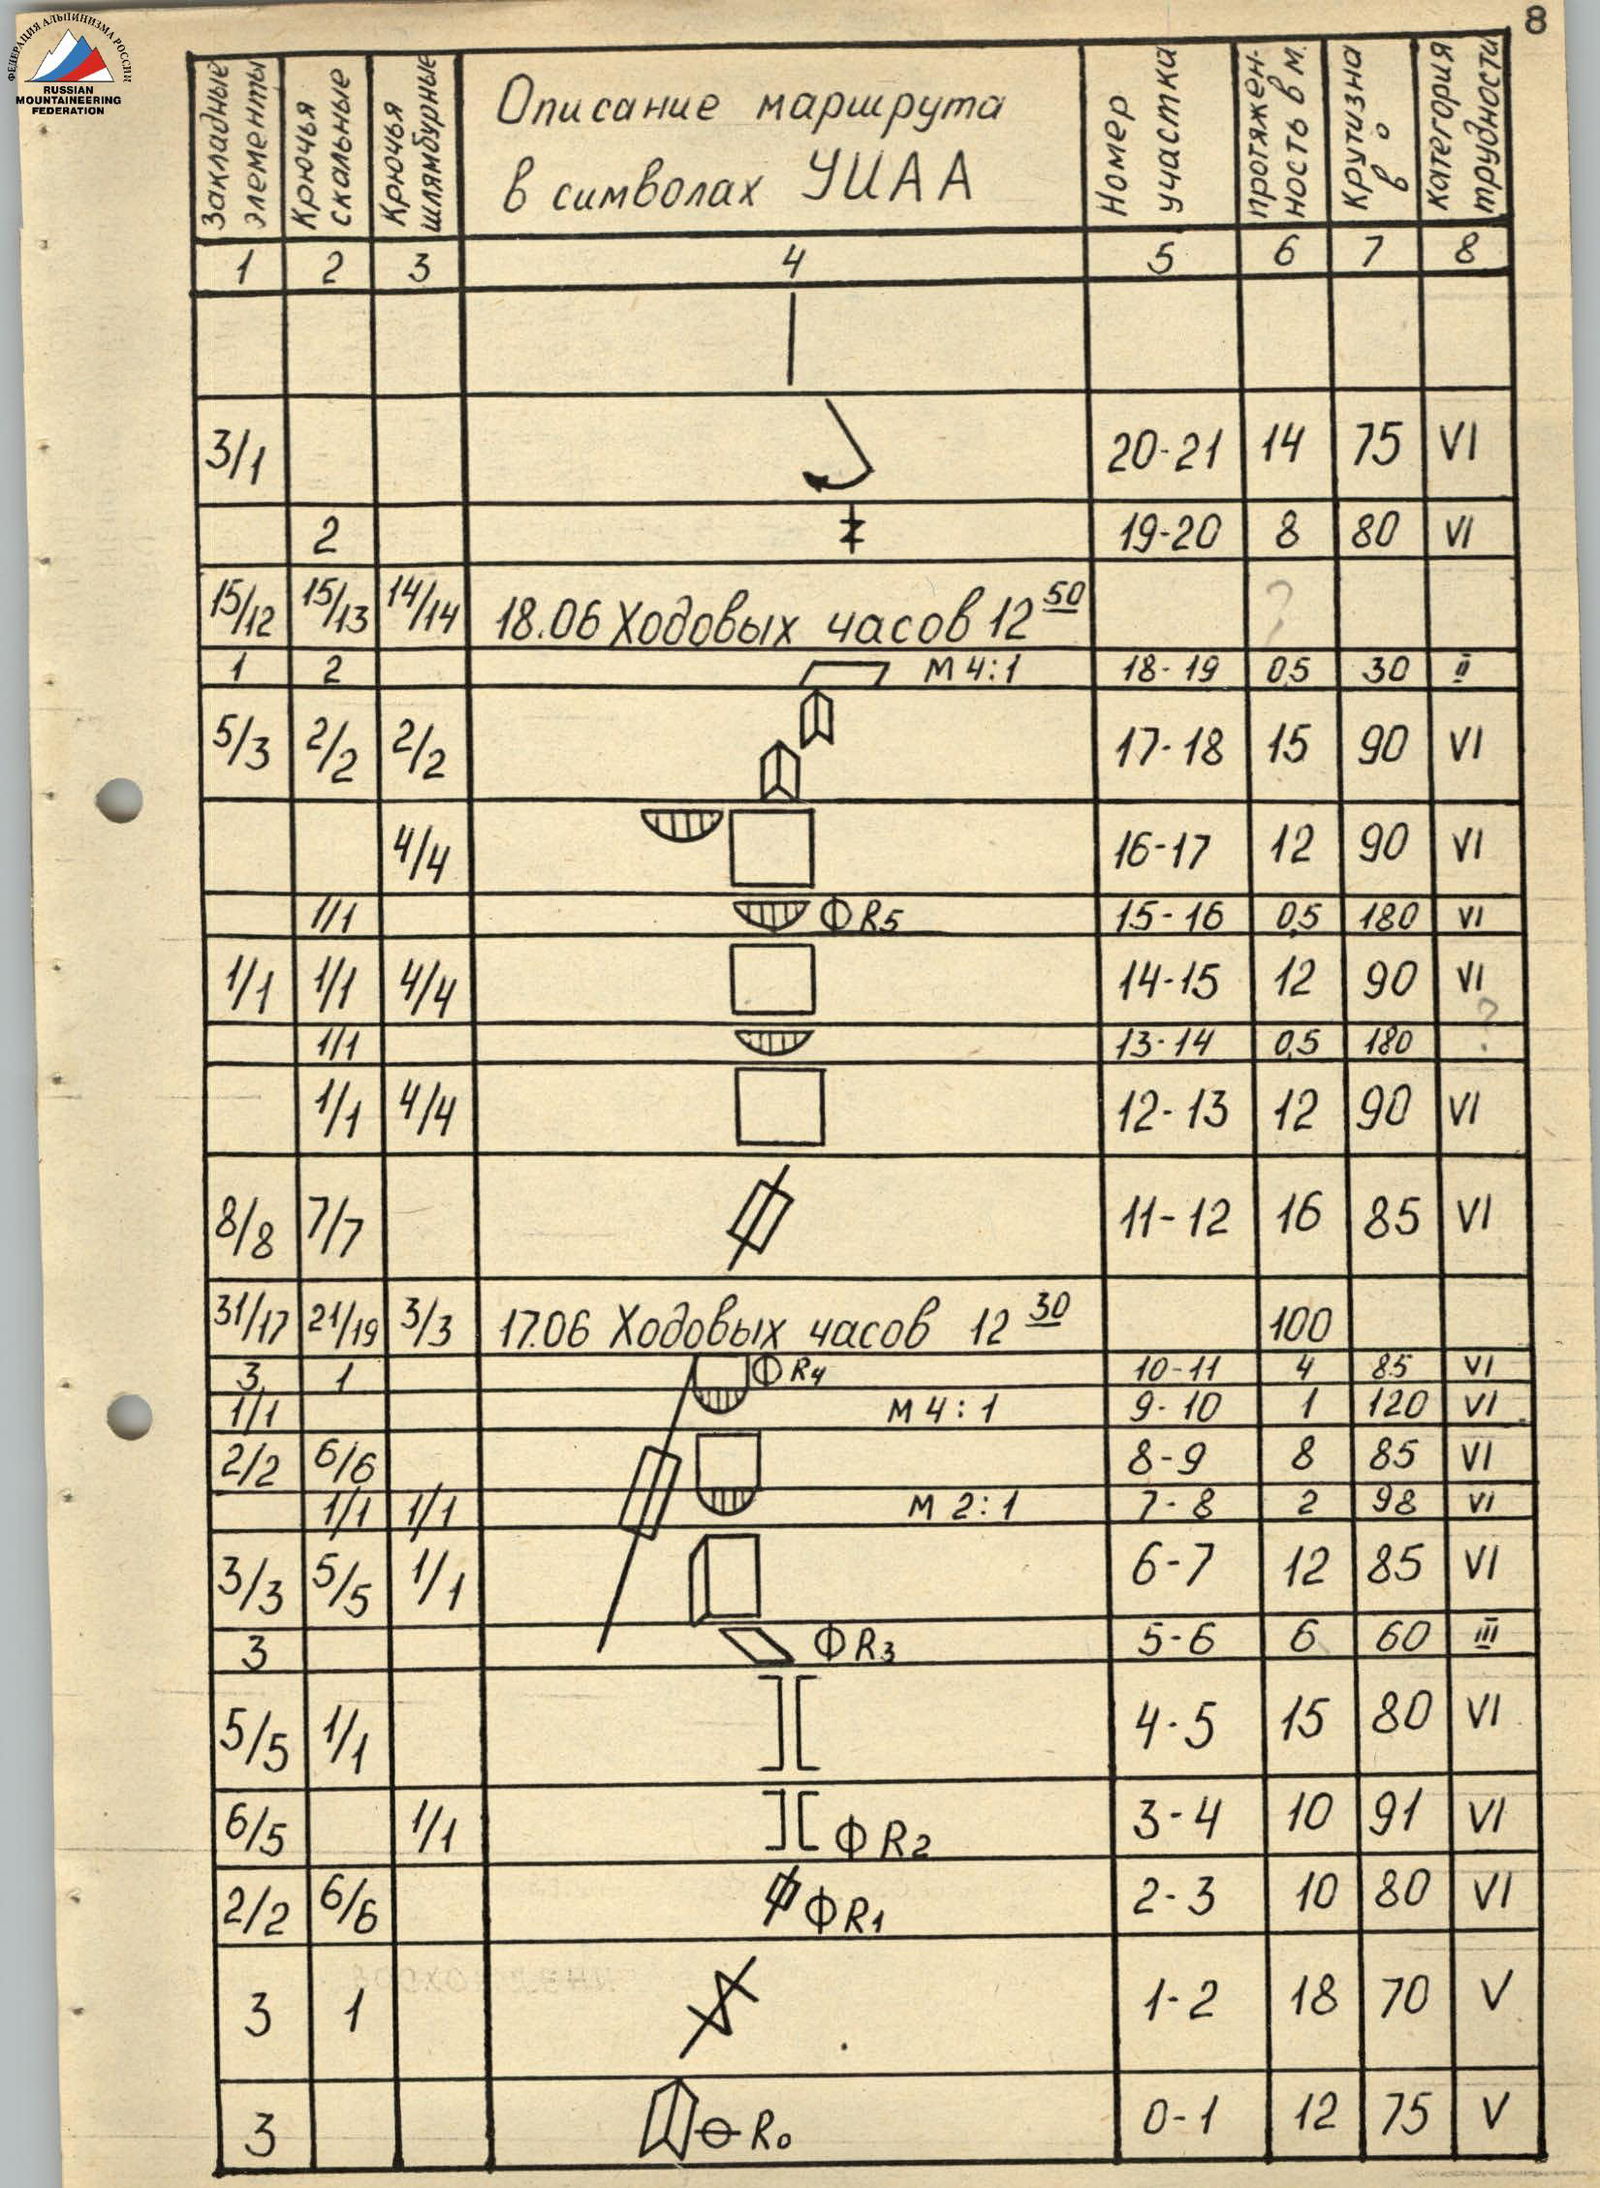 8
ФЕДЕРАЦИЯ АЛЬПИНИЗМА РОССИИ
RUSSIAN
MOUNTAINEERING
FEDERATION
Закладные элементы | Крючья скальные | Крючья шлямбурные | Описание маршрута в символах УИАА | Номер участка | протяжен-ность в м. | Крутизна в ° | категория трудности
1 2 3 4 5 6 7 8
3/1 20-21 14 75 VI
2 19-20 8 80 VI
15/12 15/13 14/14 18.06 Ходовых часов 12 50 ?
1 2 М 4:1 18-19 0,5 30 II
5/3 2/2 2/2 17-18 15 90 VI
4/4 16-17 12 90 VI
1/1 Ф R5 15-16 0,5 180 VI
1/1 1/1 4/4 14-15 12 90 VI
1/1 13-14 0,5 180 ?
1/1 4/4 12-13 12 90 VI
8/8 7/7 11-12 16 85 VI
31/17 21/19 3/3 17.06 Ходовых часов 12 30 100
3 1 Ф R4 10-11 4 85 VI
1/1 М 4:1 9-10 1 120 VI
2/2 6/6 8-9 8 85 VI
1/1 1/1 М 2:1 7-8 2 98 VI
3/3 5/5 1/1 6-7 12 85 VI
3 Ф R3 5-6 6 60 III
5/5 1/1 4-5 15 80 VI
6/5 1/1 Ф R2 3-4 10 91 VI
2/2 6/6 Ф R1 2-3 10 80 VI
3 1 1-2 18 70 V
3 R0 0-1 12 75 V